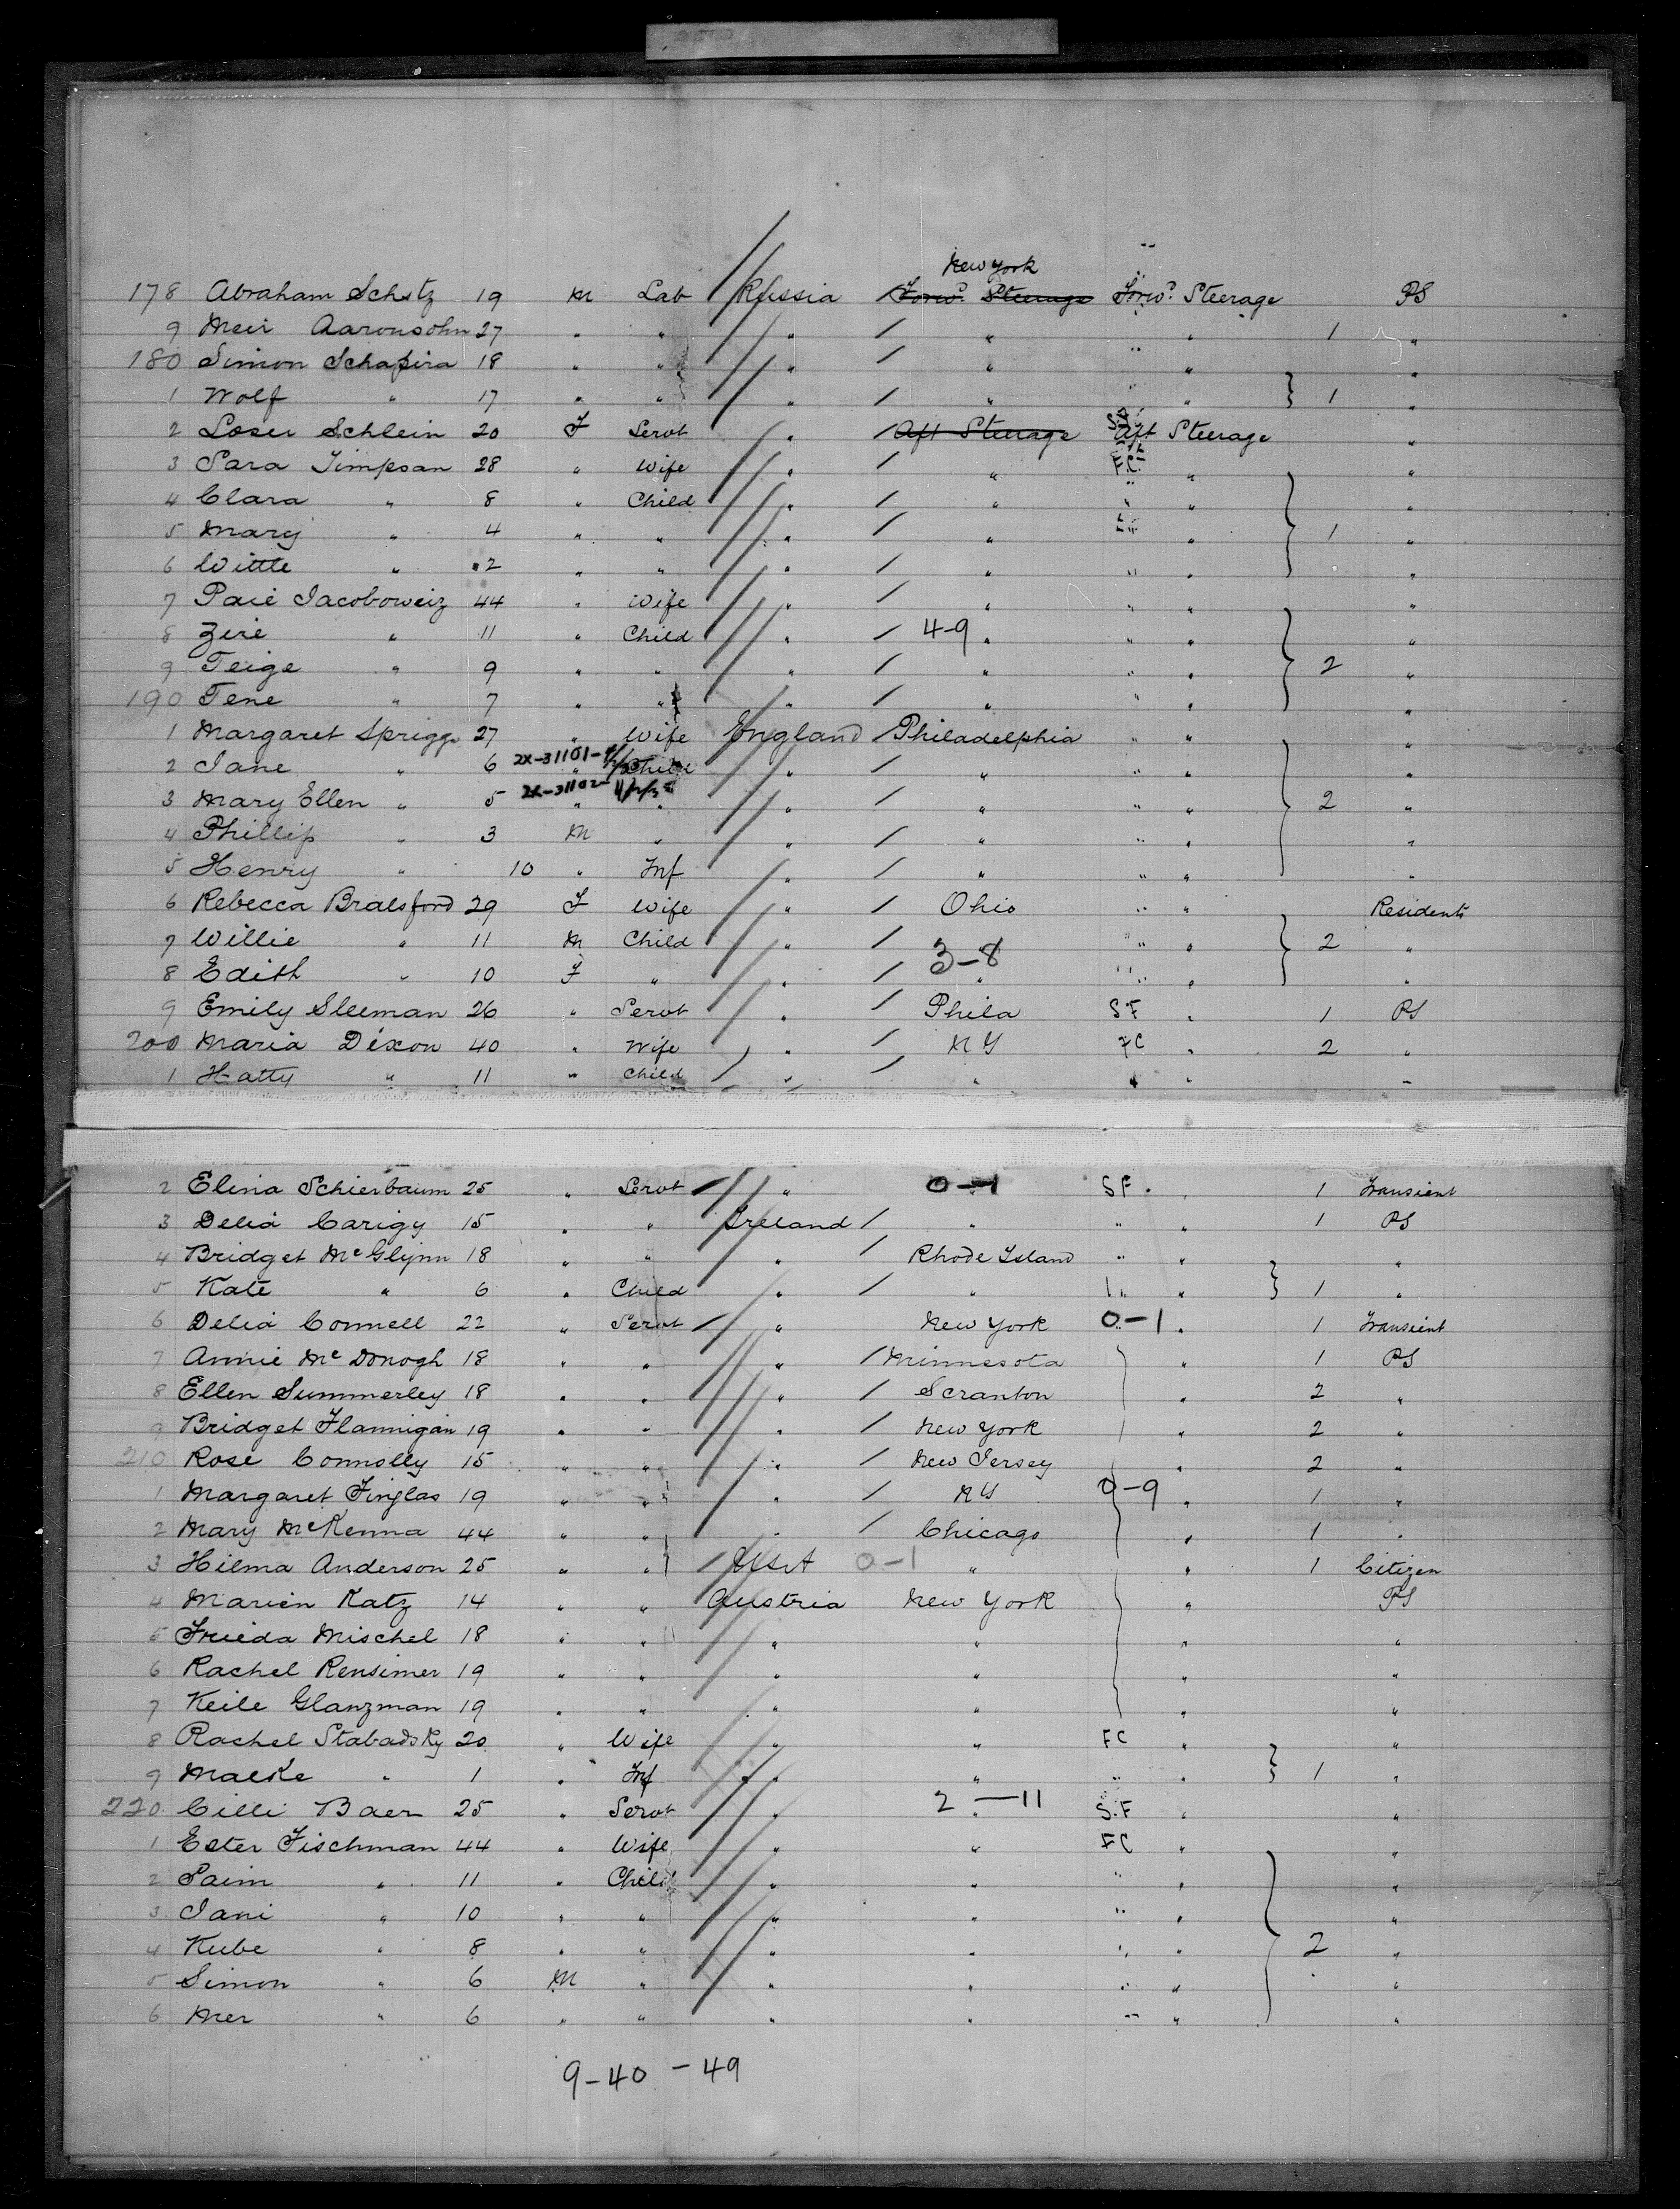 New York
178 Abraham Schatz 19 M Lab Russia Forwd. Steerage Forwd. Steerage PS
9 Meir Aaronsohn 27 " " " " " 1 "
180 Simon Schapira 18 " " " " " "
1 Wolf " 17 " " " " " } 1 "
2 Loser Schlein 20 F Servt " Aft Steerage SF Aft Steerage "
3 Sara Timpson 28 " Wife " " FC " "
4 Clara " 8 " Child " " " " "
5 Mary " 4 " " " " " " } 1 "
6 Wittle " 2 " " " " " " "
7 Paie Jacoboweiz 44 " Wife " " " " "
8 Zire " 11 " Child " 4-9 " " " "
9 Teige " 9 " " " " " " } 2 "
190 Tene " 7 " " " " " " "
1 Margaret Spriggs 27 " Wife England Philadelphia " " "
2 Jane " 6 2X-31101- " Child " " " " "
3 Mary Ellen " 5 2X-31102- " " " " " " } 2 "
4 Phillip " 3 M " " " " " "
5 Henry " 10 " Inf " " " " "
6 Rebecca Bralsford 29 F Wife " Ohio " " Residents
7 Willie " 11 M Child " " " " } 2 "
8 Edith " 10 F " " 3-8 " " " "
9 Emily Sleeman 26 " Servt " Phila SF " 1 PS
200 Maria Dixon 40 " Wife " NY FC " 2 "
1 Hatty " 11 " Child " " " " "
2 Elina Schierbaum 25 " Servt " 0-1 SF " 1 Transient
3 Delia Carigy 15 " " Ireland " " " 1 PS
4 Bridget McGlynn 18 " " " Rhode Island " " "
5 Kate " 6 " Child " " " " } 1 "
6 Delia Connell 22 " Servt " New York 0-1 " 1 Transient
7 Annie McDonogh 18 " " " Minnesota " 1 PS
8 Ellen Summerley 18 " " " Scranton " 2 "
9 Bridget Flannigan 19 " " " New York " 2 "
210 Rose Connolly 15 " " " New Jersey " 2 "
1 Margaret Finglas 19 " " " NY 0-9 " 1 "
2 Mary McKenna 44 " " " Chicago " 1 "
3 Hilma Anderson 25 " " USA 0-1 " " 1 Citizen
4 Marien Katz 14 " " Austria New York " PS
5 Frieda Mischel 18 " " " " " "
6 Rachel Rensimer 19 " " " " " "
7 Keile Glanzman 19 " " " " " "
8 Rachel Stabadsky 20 " Wife " " FC " "
9 Malke " 1 " Inf " " " " } 1 "
220 Cilli Baer 25 " Servt " 2-11 " S.F " "
1 Ester Fischman 44 " Wife " " FC " "
2 Saim " 11 " Child " " " " "
3 Jani " 10 " " " " " " "
4 Kube " 8 " " " " " " } 2 "
5 Simon " 6 M " " " " " "
6 Mer " 6 " " " " " " "
9-40-49